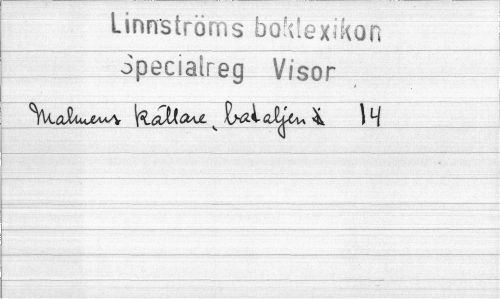 Linnströms boklexikon
Specialreg Visor
Malmens källare, bataljen i 14